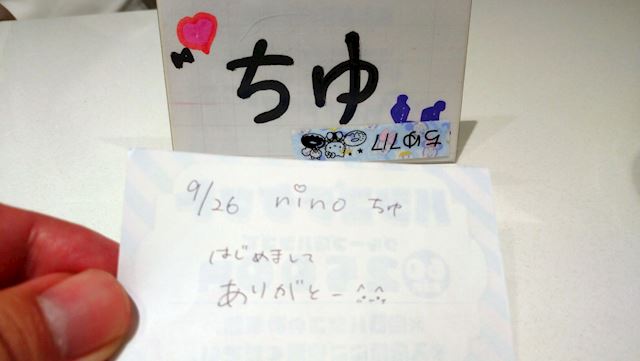 ちゆ
ちゅ717
9/26 nino ちゅ
はじめまして
ありがとー